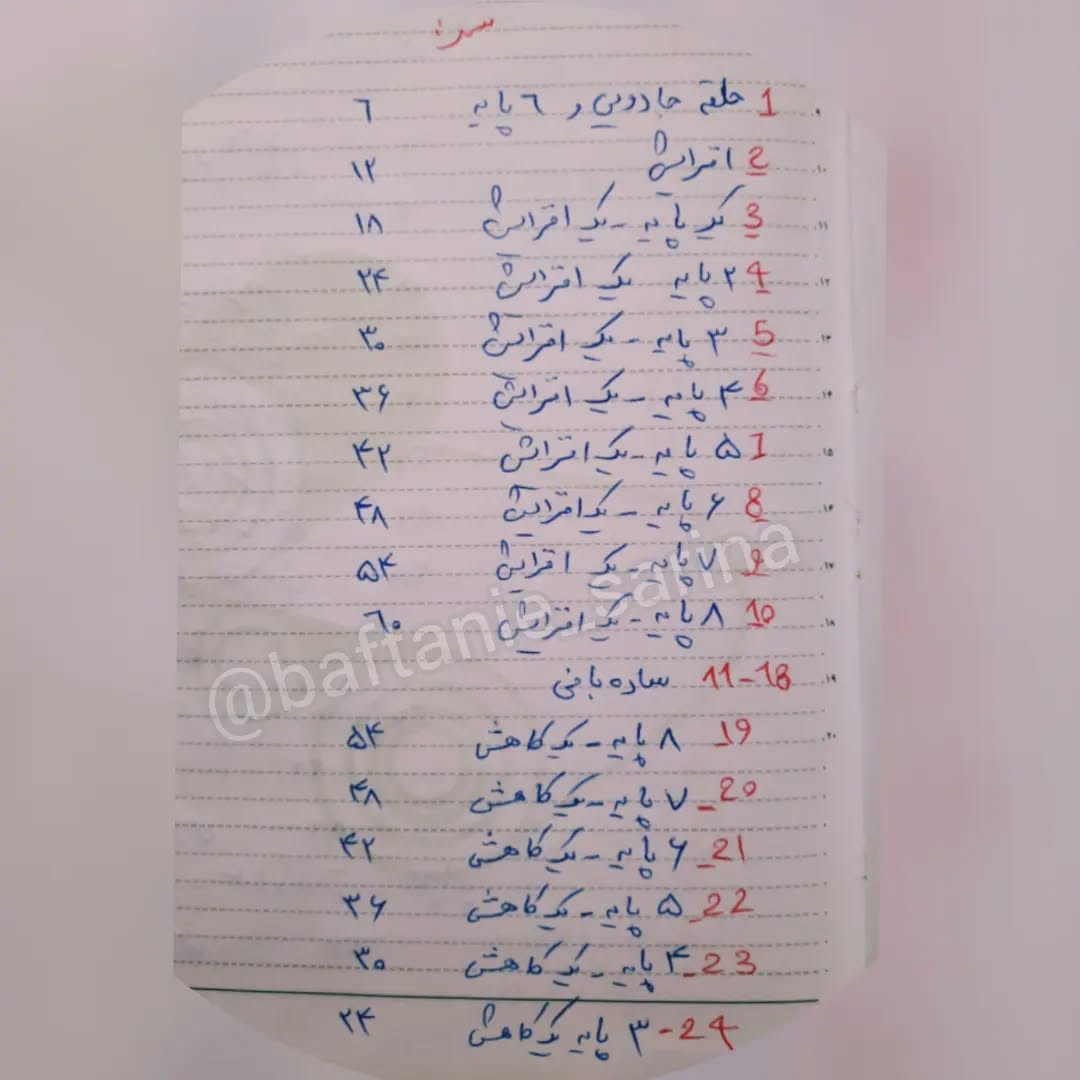 سر:
1 حلقه جادویی و ٦ پایه ٦
2 افزایش ۱۲
3 یک پایه - یک افزایش ۱۸
4 ۲ پایه یک افزایش ۲۴
5 ۳ پایه - یک افزایش ۳۰
6 ۴ پایه - یک افزایش ۳۶
7 ۵ پایه - یک افزایش ۴۲
8 ۶ پایه - یک افزایش ۴۸
9 ۷ پایه - یک افزایش ۵۴
10 ۸ پایه - یک افزایش ٦۰
11-18 ساده بافی
19_ ۸ پایه - یک کاهش ۵۴
20_ ۷ پایه - یک کاهش ۴۸
21_ ۶ پایه - یک کاهش ۴۲
22_ ۵ پایه - یک کاهش ۳۶
23_ ۴ پایه - یک کاهش ۳۰
24- ۳ پایه یک کاهش ۲۴
@baftanie_sarina
۹
۱۰
۱۱
۱۲
۱۳
۱۴
۱۵
۱۶
۱۷
۱۸
۱۹
۲۰